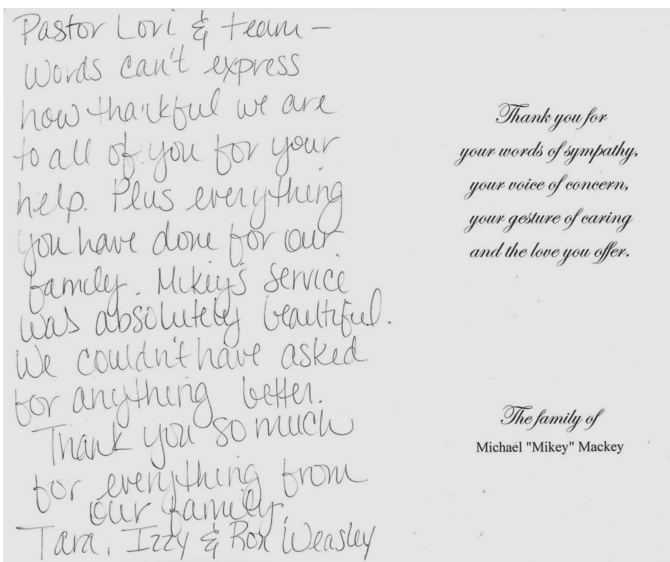 Pastor Lori & team –
Words can't express
how thankful we are
to all of you for your
help. Plus everything
you have done for our
family. Mikey's service
was absolutely beautiful.
We couldn't have asked
for anything better.
Thank you so much
for everything from
our family,
Tara, Izzy & Ron Weasley
Thank you for
your words of sympathy,
your voice of concern,
your gesture of caring
and the love you offer.
The family of
Michael "Mikey" Mackey